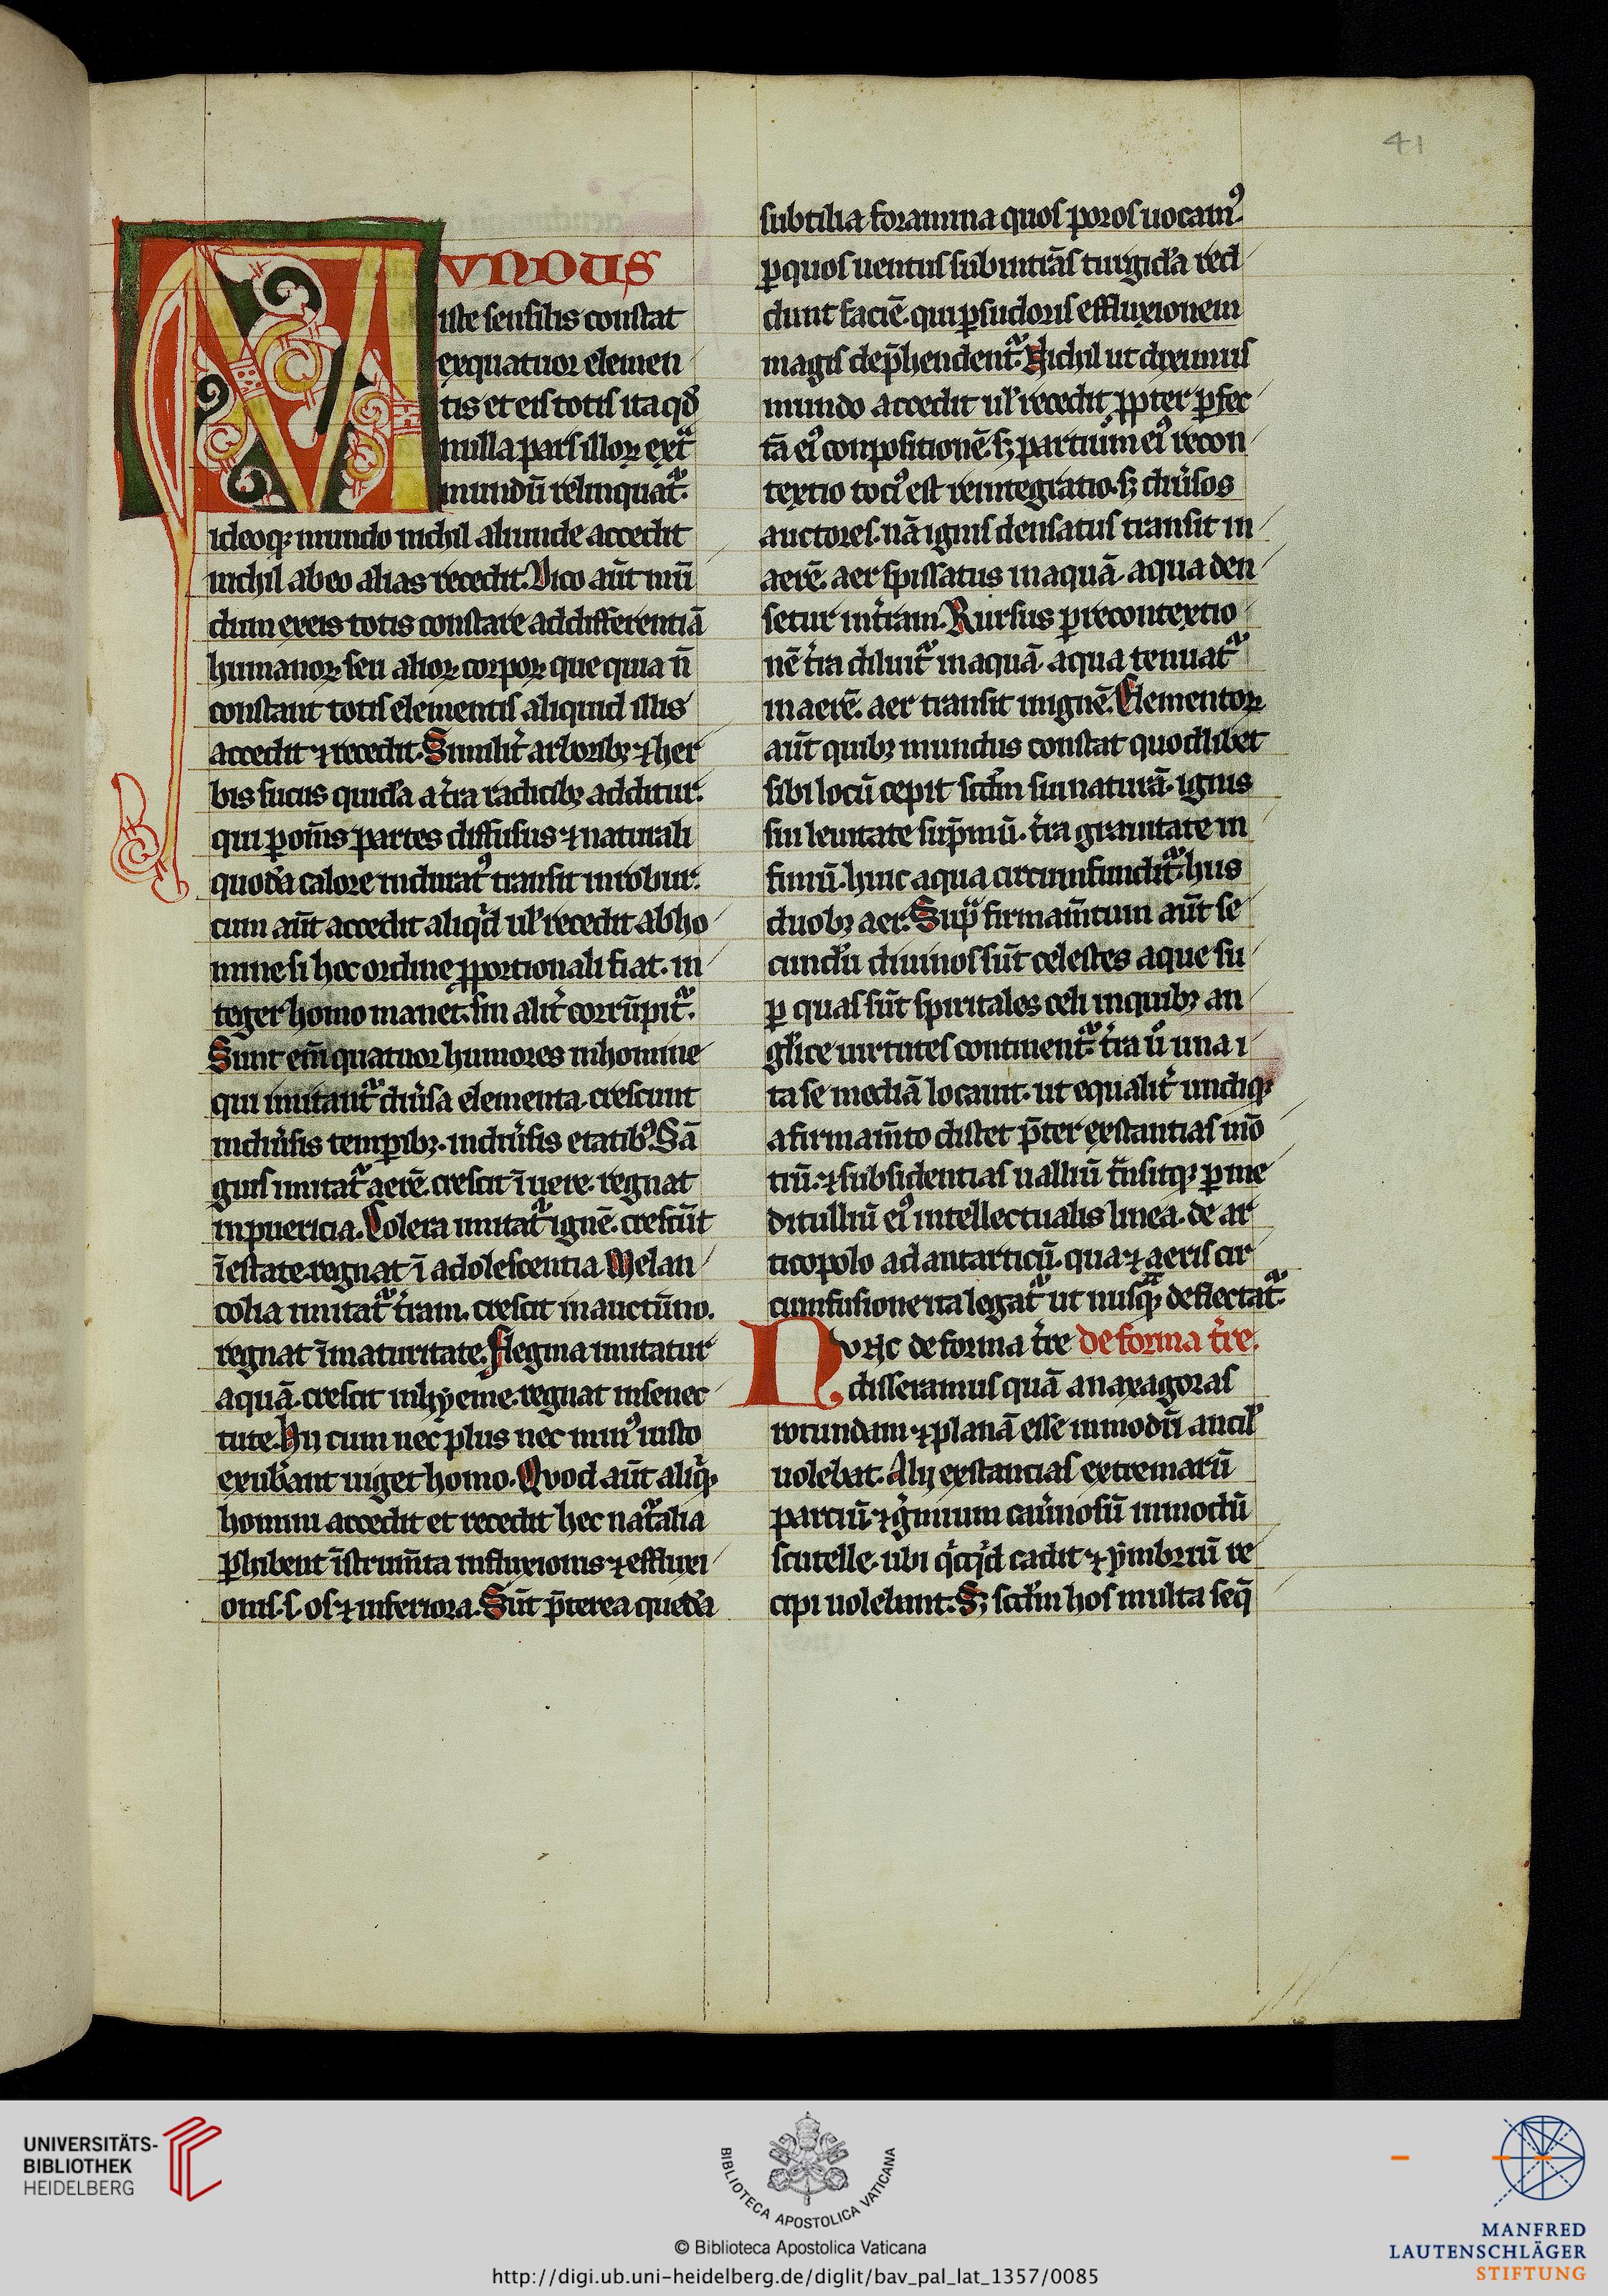 41
MVNDUS
iste sensilis constat
ex quatuor elemen
tis et eis totis ita qd̃
nulla pars illoꝝ ext̃
mundũ relinquat᷑.
ideoqꝫ mundo nichil aliunde accedit
nichil ab eo alias recedit. Dico aũt mũ
dum ex eis totis constare ad differentiã
humanoꝝ seu alioꝝ corpoꝝ que quia ñ
constant totis elementis aliquid illis
accedit ⁊ recedit. Similit̾ arboribꝫ ⁊ her
bis sucus quidã a t̾ra radicibꝫ additur.
qui ꝑ om̃s partes diffusus ⁊ naturali
quodã calore induratꝰ transit in robur.
cum aũt accedit aliqͥd ul̾ recedit ab ho
mine si hoc ordine ꝓportionali fiat. in
teger homo manet. sin alit̾ corrũpit᷑.
Sunt em̃ quatuor humores in homine
qui imitant᷑ diu̾sa elementa. crescunt
in diu̾sis temꝑibꝫ. in diu̾sis etatibꝰ. Sã
guis imitat᷑ aerẽ. crescit ĩ uere. regnat
in puericia. Colera imitat᷑ ignẽ. crescũt
ĩ estate. regnat ĩ adolescentia. Melan
colia imitat᷑ t̾ram. crescit in auctũno.
regnat ĩ maturitate. Flegma imitatur
aquã. crescit in hyeme. regnat in senec
tute. Hii cum nec plus nec minꝰ iusto
exub̾ant uiget homo. Quod aũt aliqͥꝫ
homini accedit et recedit hec nat᷑alia
ꝓhibent ĩstrum̃ta influxionis ⁊ effluxi
onis. s. os ⁊ inferiora. Sũt p̃terea quedã
subtilia foramina quos poros uocamꝰ.
ꝑ quos uentus subintrãs turgidã red
dunt faciẽ. qui ꝑ sudoris effluxionem
magis dep̃hendent᷑. Nichil ut diximus
mundo accedit ul̾ recedit ꝓpter ꝑfec
tã eiꝰ conpositionẽ. sꝫ partium eiꝰ recon
textio tociꝰ est reintegratio. sꝫ diu̾sos
auctores. nã ignis densatus transit in
aerẽ. aer spissatus in aquã. aqua den
setur in t̾ram. Rursus ꝑ recontextio
nẽ t̾ra diluit᷑ in aquã. aqua tenuat᷑
in aerẽ. aer transit in ignẽ. Elementoꝝ
aũt quibꝫ mundus constat quodlibet
sibi locũ cepit scd̾m sui naturã. ignis
sui leuitate sup̃mũ. t̾ra grauitate in
fimũ. hinc aqua circumfundit᷑. hiis
duobꝫ aer. Supͣ firmam̃tum aũt se
cundũ diuinos sũt celestes aque su
ꝑ quas sũt spiritales celi in quibꝫ an
gl̾ice uirtutes continent᷑. t̾ra u̾o una i
ta se mediã locauit. ut equalit̾ undiqꝫ
a firmam̃to distet p̃ter exstantias mõ
tiũ. ⁊ subsidentias ualliũ t̃nsitqꝫ ꝑ me
ditulliũ eiꝰ intellectualis linea. de ar
tico polo ad antarticũ. qua ⁊ aeris cir
cumfusione ita legat᷑ ut nusqͣꝫ deflectat᷑.
NVNC de forma t̾re de forma t̾re.
disseramus quã anaxagoras
rotundam ⁊ planã esse in modũ ancil̾
uolebat. Alij exstancias extremarũ
parciũ. ⁊ g̾mium cau̾nosũ in modũ
scutelle. ubi qͥcqͥd cadit ⁊ ymbriũ re
cipi uolebant. Sꝫ scd̾m hos multa seq̃
UNIVERSITÄTS-
BIBLIOTHEK
HEIDELBERG
BIBLIOTECA APOSTOLICA VATICANA
© Biblioteca Apostolica Vaticana
http://digi.ub.uni-heidelberg.de/diglit/bav_pal_lat_1357/0085
MANFRED
LAUTENSCHLÄGER
STIFTUNG